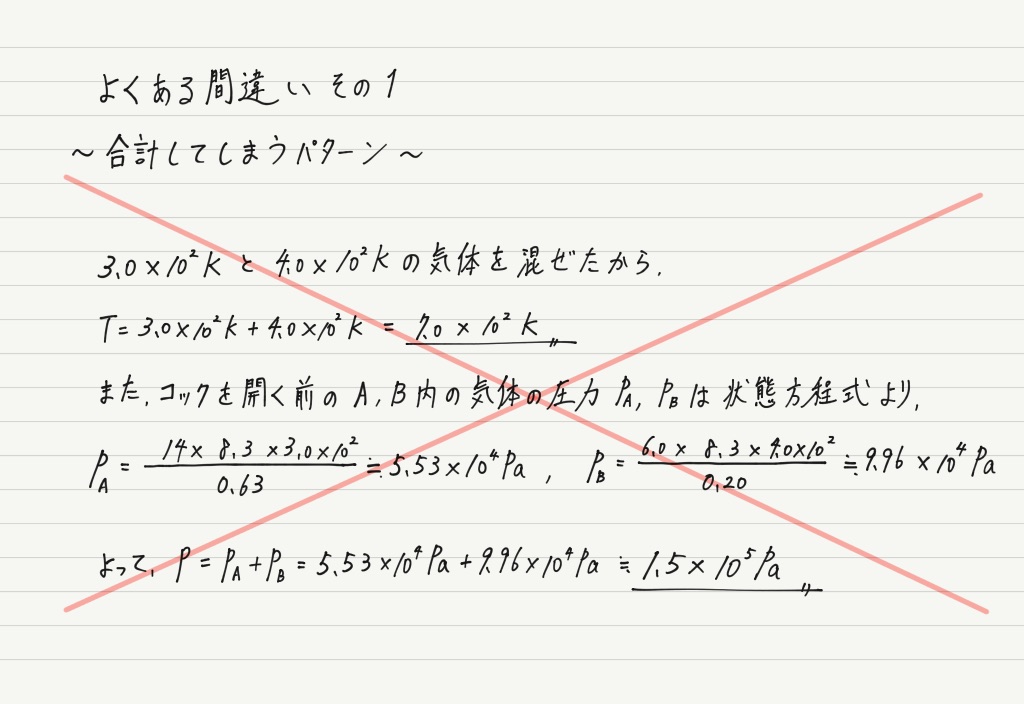 よくある間違い その1
～合計してしまうパターン～
3.0×10²Kと 4.0×10²Kの気体を混ぜたから.
T=3.0×10²K+4.0×10²K = 7.0×10²K
また,コックを開く前のA,B内の気体の圧力 P_A, P_Bは状態方程式より,
P_A = 14×8.3×3.0×10²/0.63 ≒ 5.53×10⁴Pa , P_B = 6.0×8.3×4.0×10²/0.20 ≒ 9.96×10⁴Pa
よって, P = P_A+P_B = 5.53×10⁴Pa+9.96×10⁴Pa ≒ 1.5×10⁵Pa